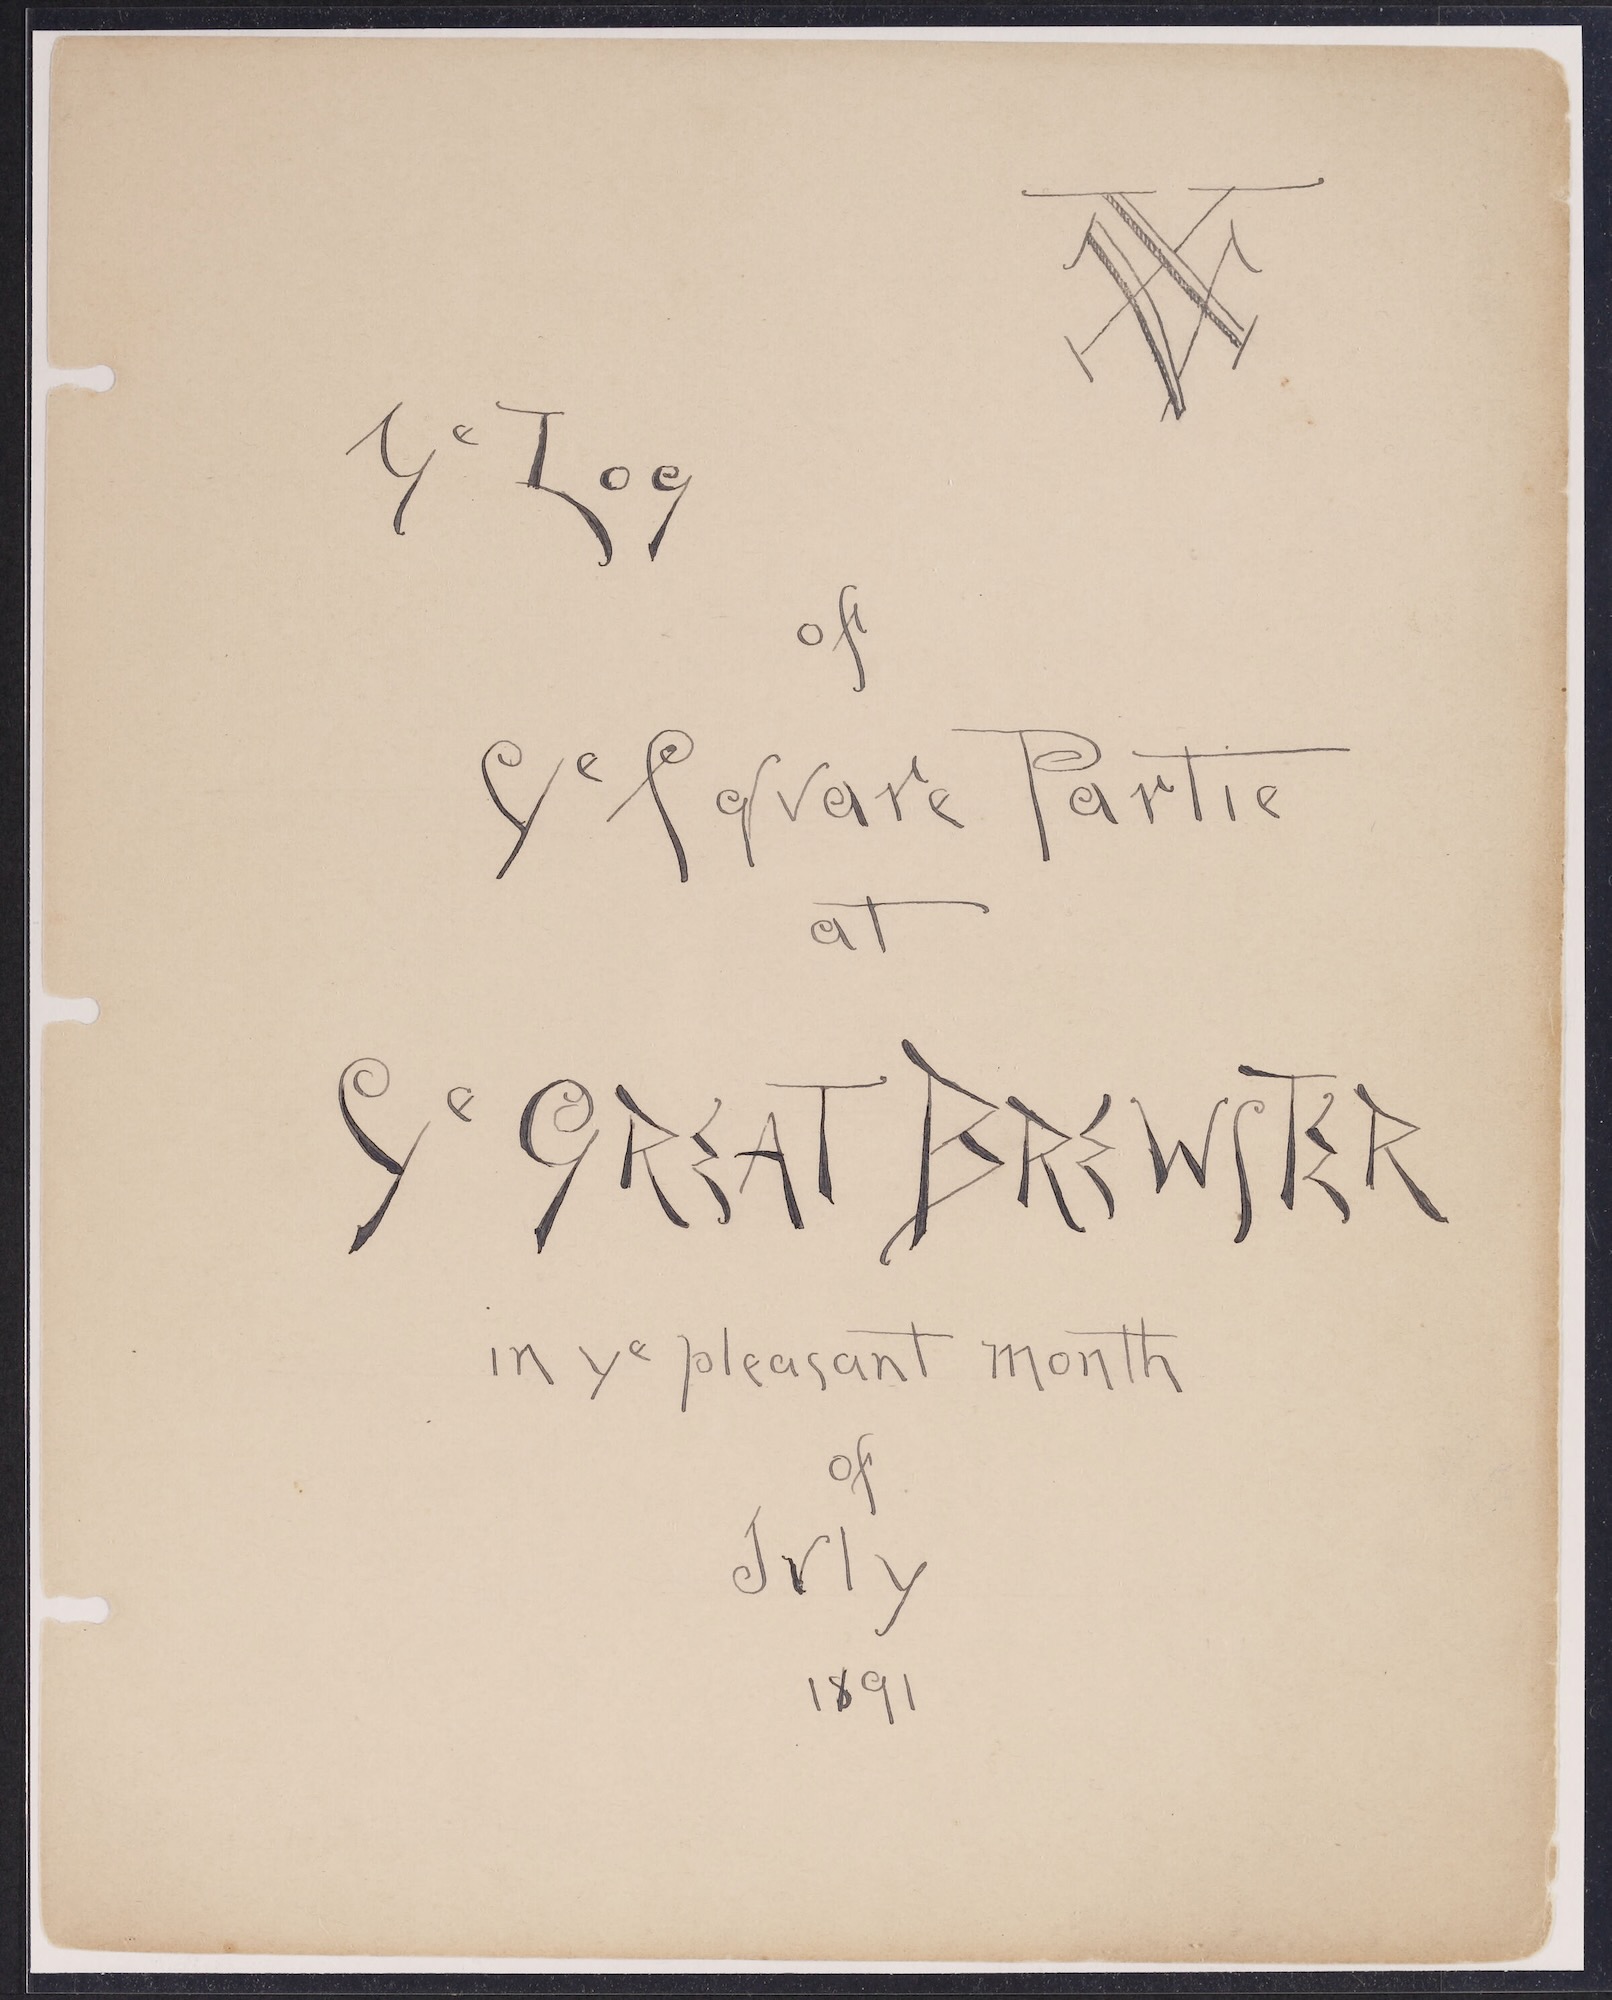 Ye Log
of
Ye Sqvare Partie
at
Ye GREAT BREWSTER
in ye pleasant month
of
Jvly
1891